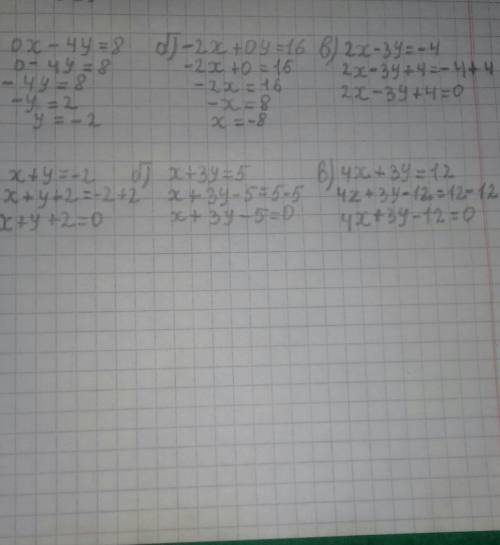 0x - 4y = 8 б) -2x + 0y = 16 в) 2x - 3y = -4
0 - 4y = 8 -2x + 0 = 16 2x - 3y + 4 = -4 + 4
- 4y = 8 -2x = 16 2x - 3y + 4 = 0
-y = 2 -x = 8
y = -2 x = -8
x + y = -2 б) x + 3y = 5 в) 4x + 3y = 12
x + y + 2 = -2 + 2 x + 3y - 5 = 5 - 5 4x + 3y - 12 = 12 - 12
x + y + 2 = 0 x + 3y - 5 = 0 4x + 3y - 12 = 0